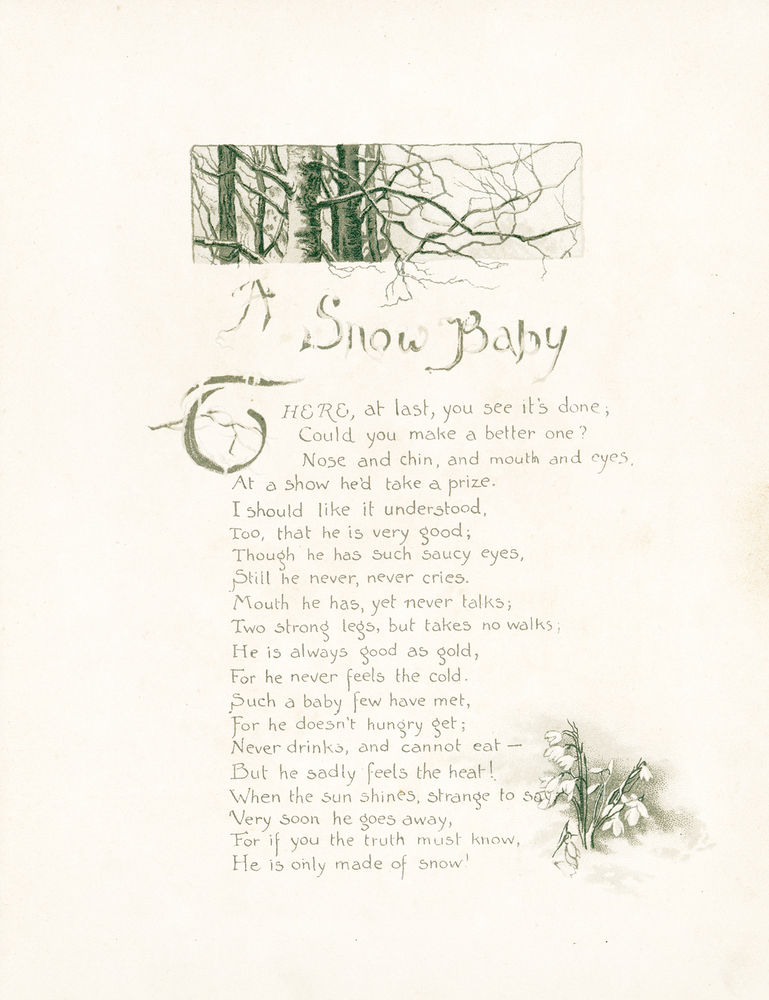 A Snow Baby
THERE, at last, you see it's done;
Could you make a better one?
Nose and chin, and mouth and eyes,
At a show he'd take a prize.
I should like it understood,
Too, that he is very good;
Though he has such saucy eyes,
Still he never, never cries.
Mouth he has, yet never talks;
Two strong legs, but takes no walks;
He is always good as gold,
For he never feels the cold.
Such a baby few have met,
For he doesn't hungry get;
Never drinks, and cannot eat —
But he sadly feels the heat!
When the sun shines, strange to say,
Very soon he goes away,
For if you the truth must know,
He is only made of snow!